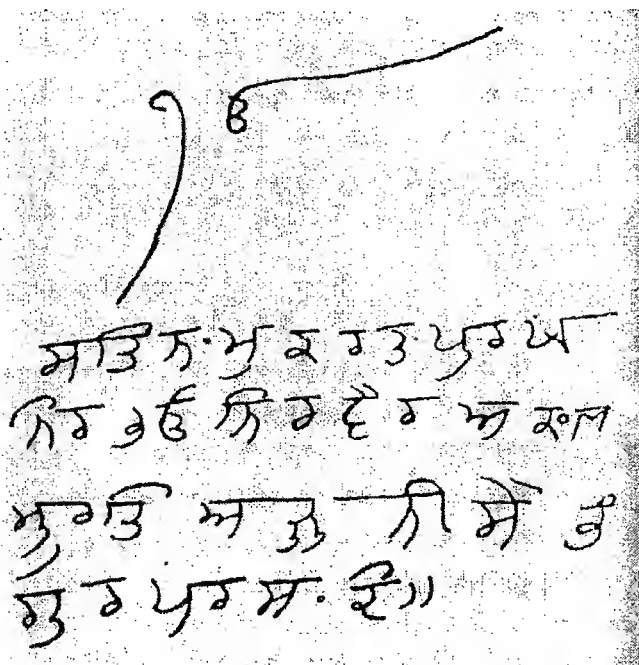 ੴ
ਸਤਿ ਨ·ਮੁ ਕਰਤ· ਪੁਰਖ
ਨਿਰਭਉ ਨਿਰਵੈਰ ਅਕ·ਲ
ਮੂਰਤਿ ਅਜੂਨੀ ਸੈਭੰ
ਗੁਰ ਪਰਸ·ਦਿ॥